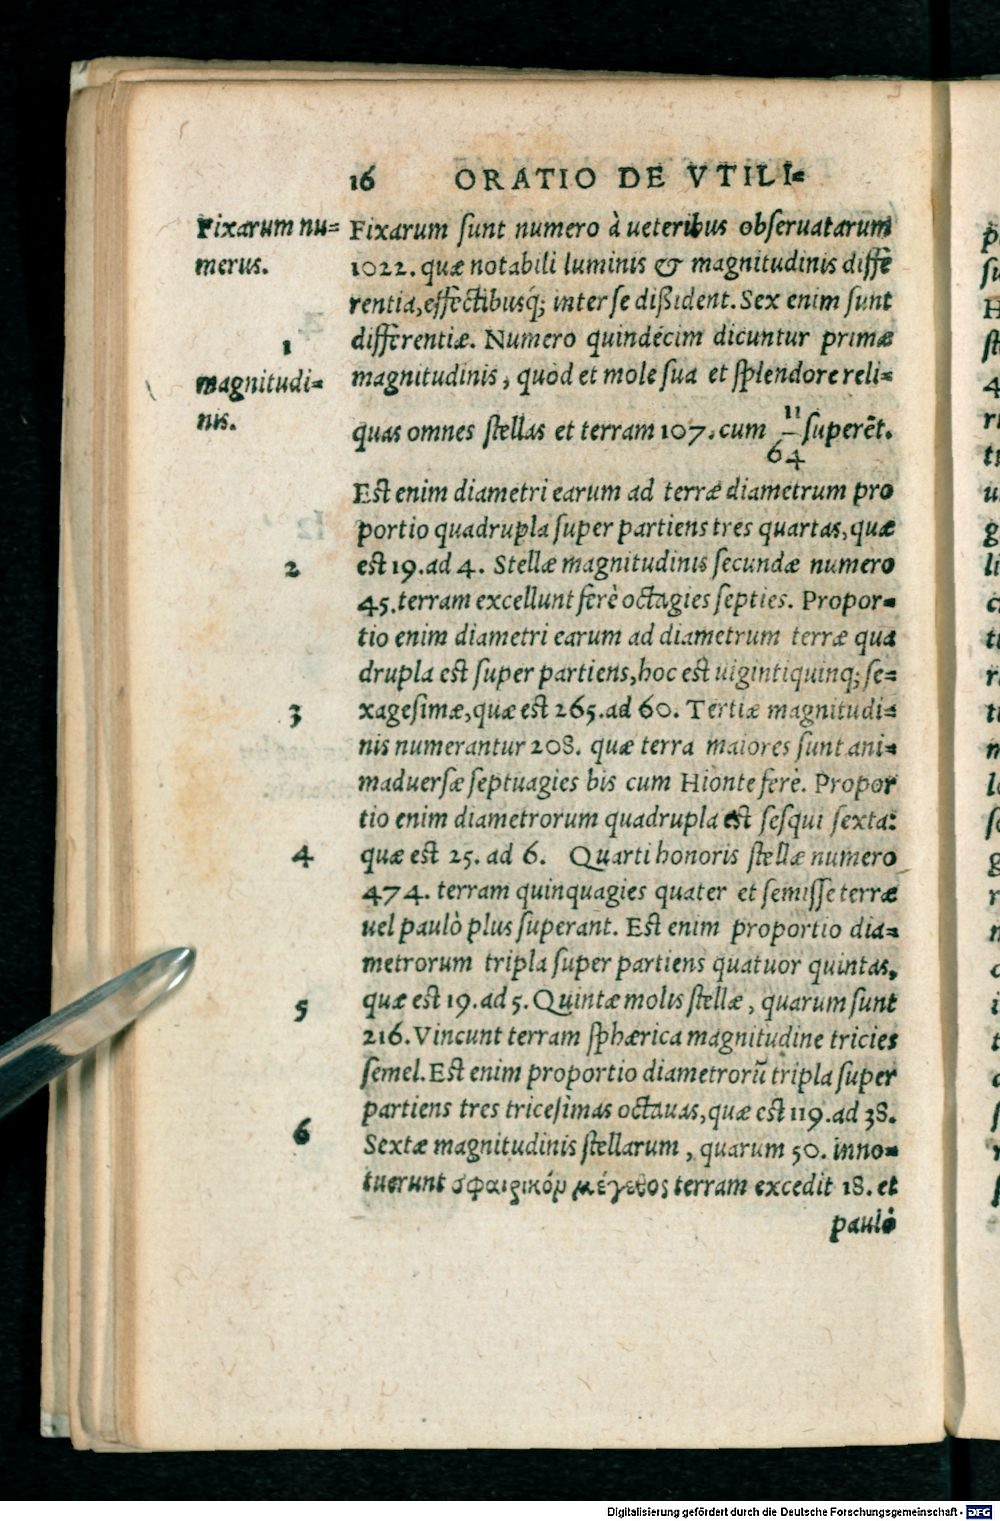 16 ORATIO DE VTILI=
Fixarum nu=
merus.
Fixarum sunt numero à ueteribus obseruatarum
1022. quæ notabili luminis & magnitudinis diffe
rentia, effectibusq́; inter se dißident. Sex enim sunt
differentiæ. Numero quindecim dicuntur primæ
1
magnitudi=
nis.
magnitudinis, quòd et mole sua et splendore reli=
quas omnes stellas et terram 107. cum 11/64 superẽt.
Est enim diametri earum ad terræ diametrum pro
portio quadrupla super partiens tres quartas, quæ
2
est 19. ad 4. Stellæ magnitudinis secundæ numero
45. terram excellunt ferè octagies septies. Propor=
tio enim diametri earum ad diametrum terræ qua
drupla est super partiens, hoc est uigintiquinq; se=
3
xagesimæ, quæ est 265. ad 60. Tertiæ magnitudi=
nis numerantur 208. quæ terra maiores sunt ani=
maduersæ septuagies bis cum Hionte ferè. Propor
tio enim diametrorum quadrupla est sesqui sexta:
4
quæ est 25. ad 6. Quarti honoris stellæ numero
474. terram quinquagies quater et semisse terræ
uel paulò plus superant. Est enim proportio dia=
metrorum tripla super partiens quatuor quintas,
5
quæ est 19. ad 5. Quintæ molis stellæ, quarum sunt
216. Vincunt terram sphærica magnitudine tricies
semel. Est enim proportio diametrorũ tripla super
partiens tres tricesimas octauas, quæ est 119. ad 38.
6
Sextæ magnitudinis stellarum, quarum 50. inno=
tuerunt σφαιρικόν μέγεθος terram excedit 18. et
paulò
Digitalisierung gefördert durch die Deutsche Forschungsgemeinschaft - DFG